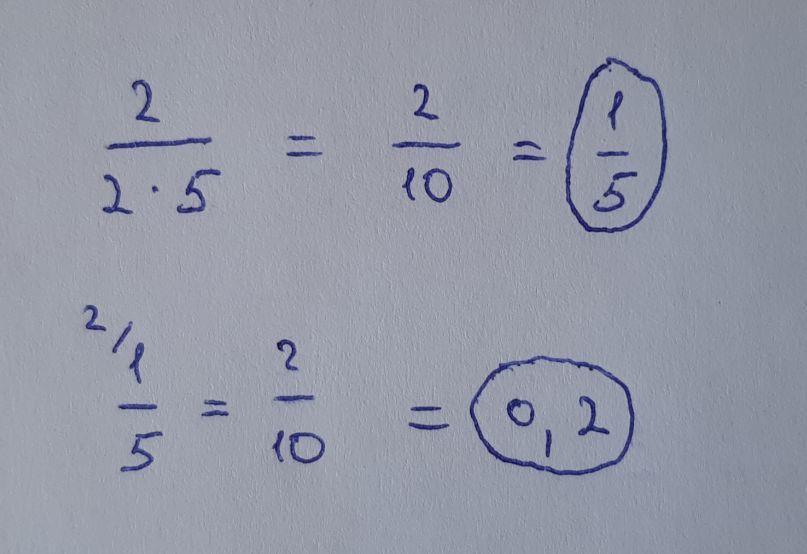 2/(2 · 5) = 2/10 = 1/5
²/ 1/5 = 2/10 = 0,2